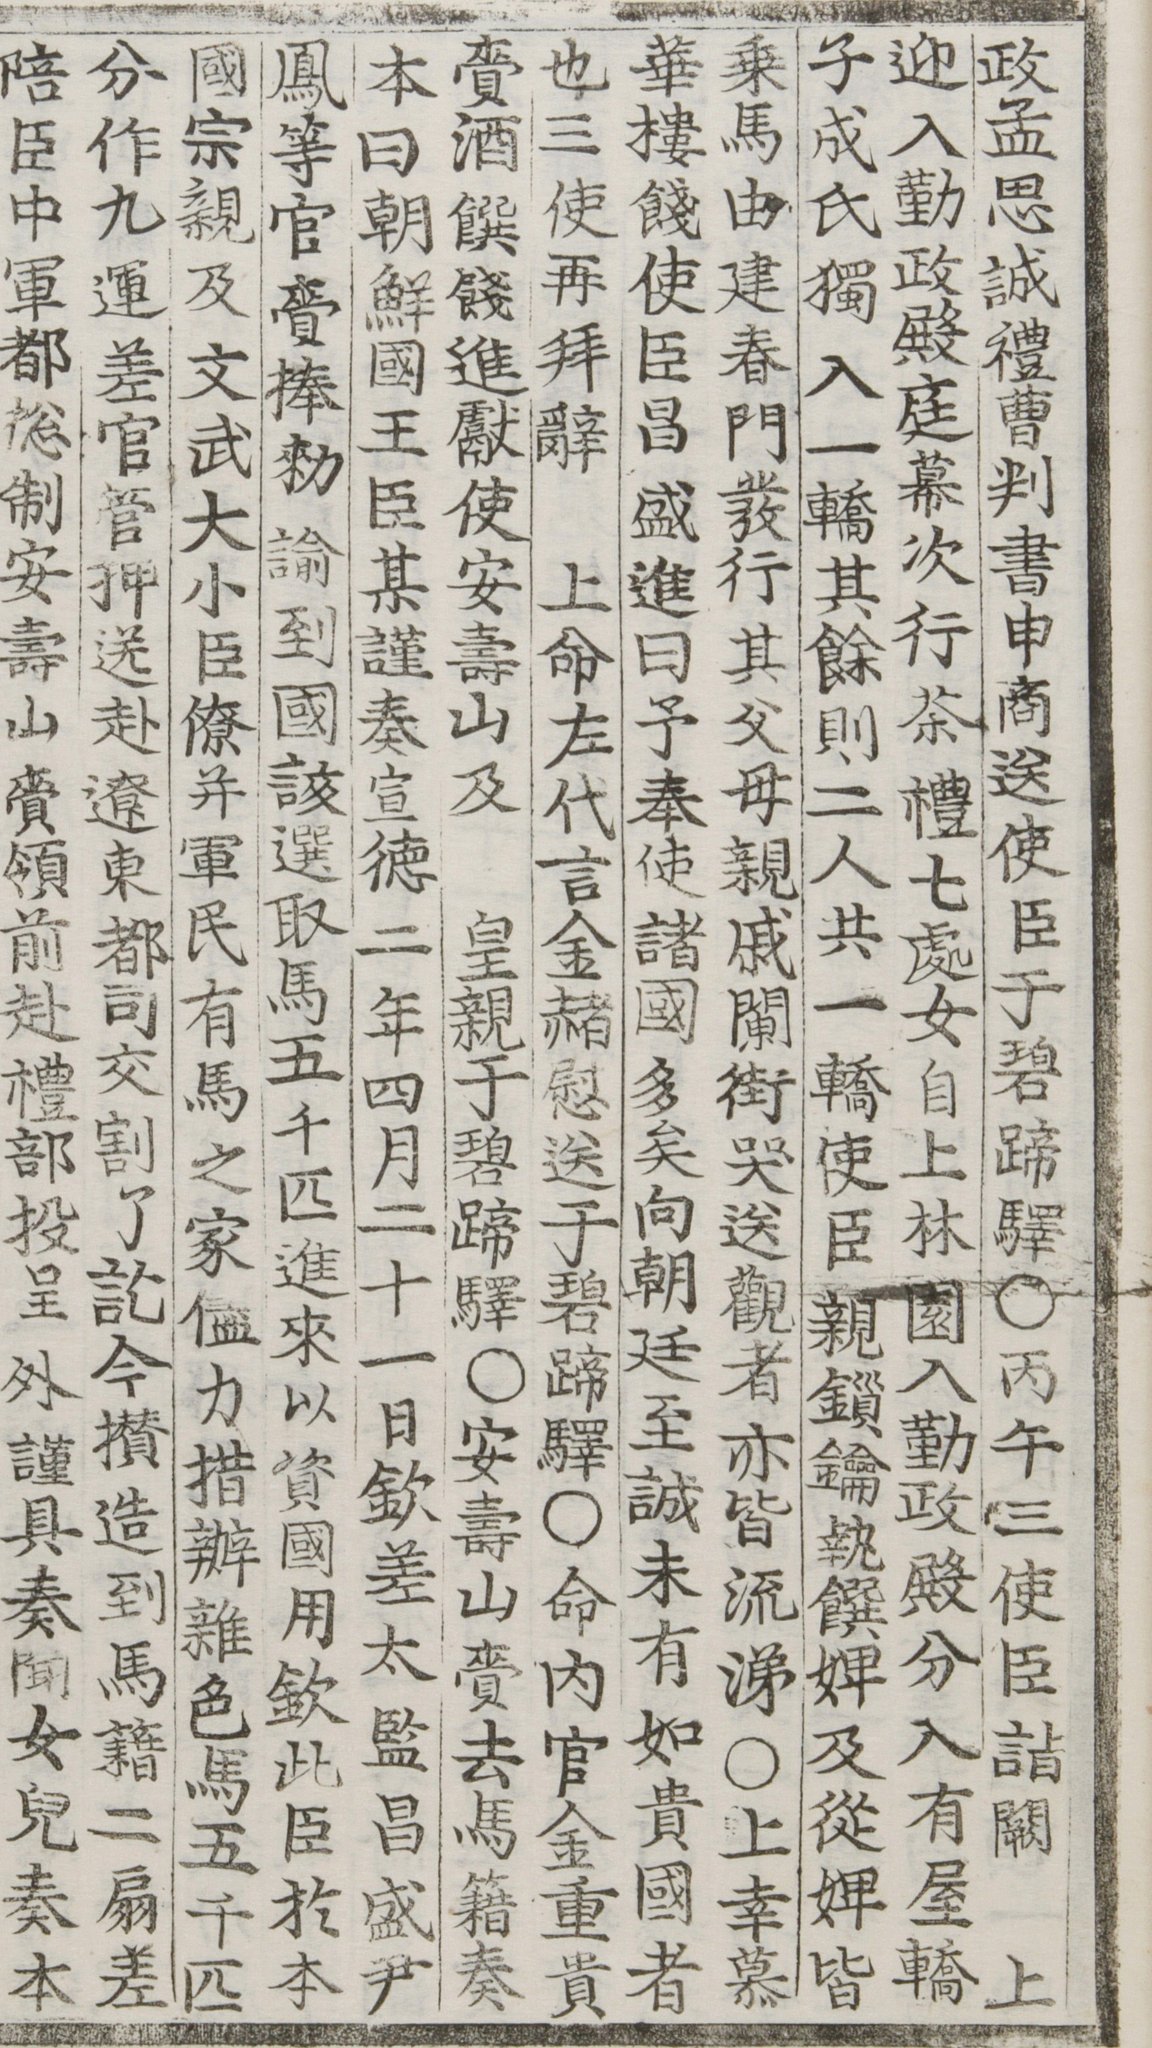 政孟思誠禮曹判書申商送使臣于碧蹄驛○丙午三使臣詣闕 上
迎入勤政殿庭幕次行茶禮七處女自上林園入勤政殿分入有屋轎
子成氏獨入一轎其餘則二人共一轎使臣親鎖鑰執饌婢及從婢皆
乘馬由建春門發行其父母親戚闌街哭送觀者亦皆流涕○上幸慕
華樓餞使臣昌盛進曰予奉使諸國多矣向朝廷至誠未有如貴國者
也三使再拜辭 上命左代言金赭慰送于碧蹄驛○命內官金重貴
齎酒饌餞進獻使安壽山及 皇親于碧蹄驛○安壽山齎去馬籍奏
本曰朝鮮國王臣某謹奏宣德二年四月二十一日欽差太監昌盛尹
鳳等官齎捧勑諭到國該選取馬五千匹進來以資國用欽此臣於本
國宗親及文武大小臣僚并軍民有馬之家儘力措辦雜色馬五千匹
分作九運差官管押送赴遼東都司交割了訖今攢造到馬籍二扇差
陪臣中軍都摠制安壽山齎領前赴禮部投呈外謹具奏聞女兒奏本